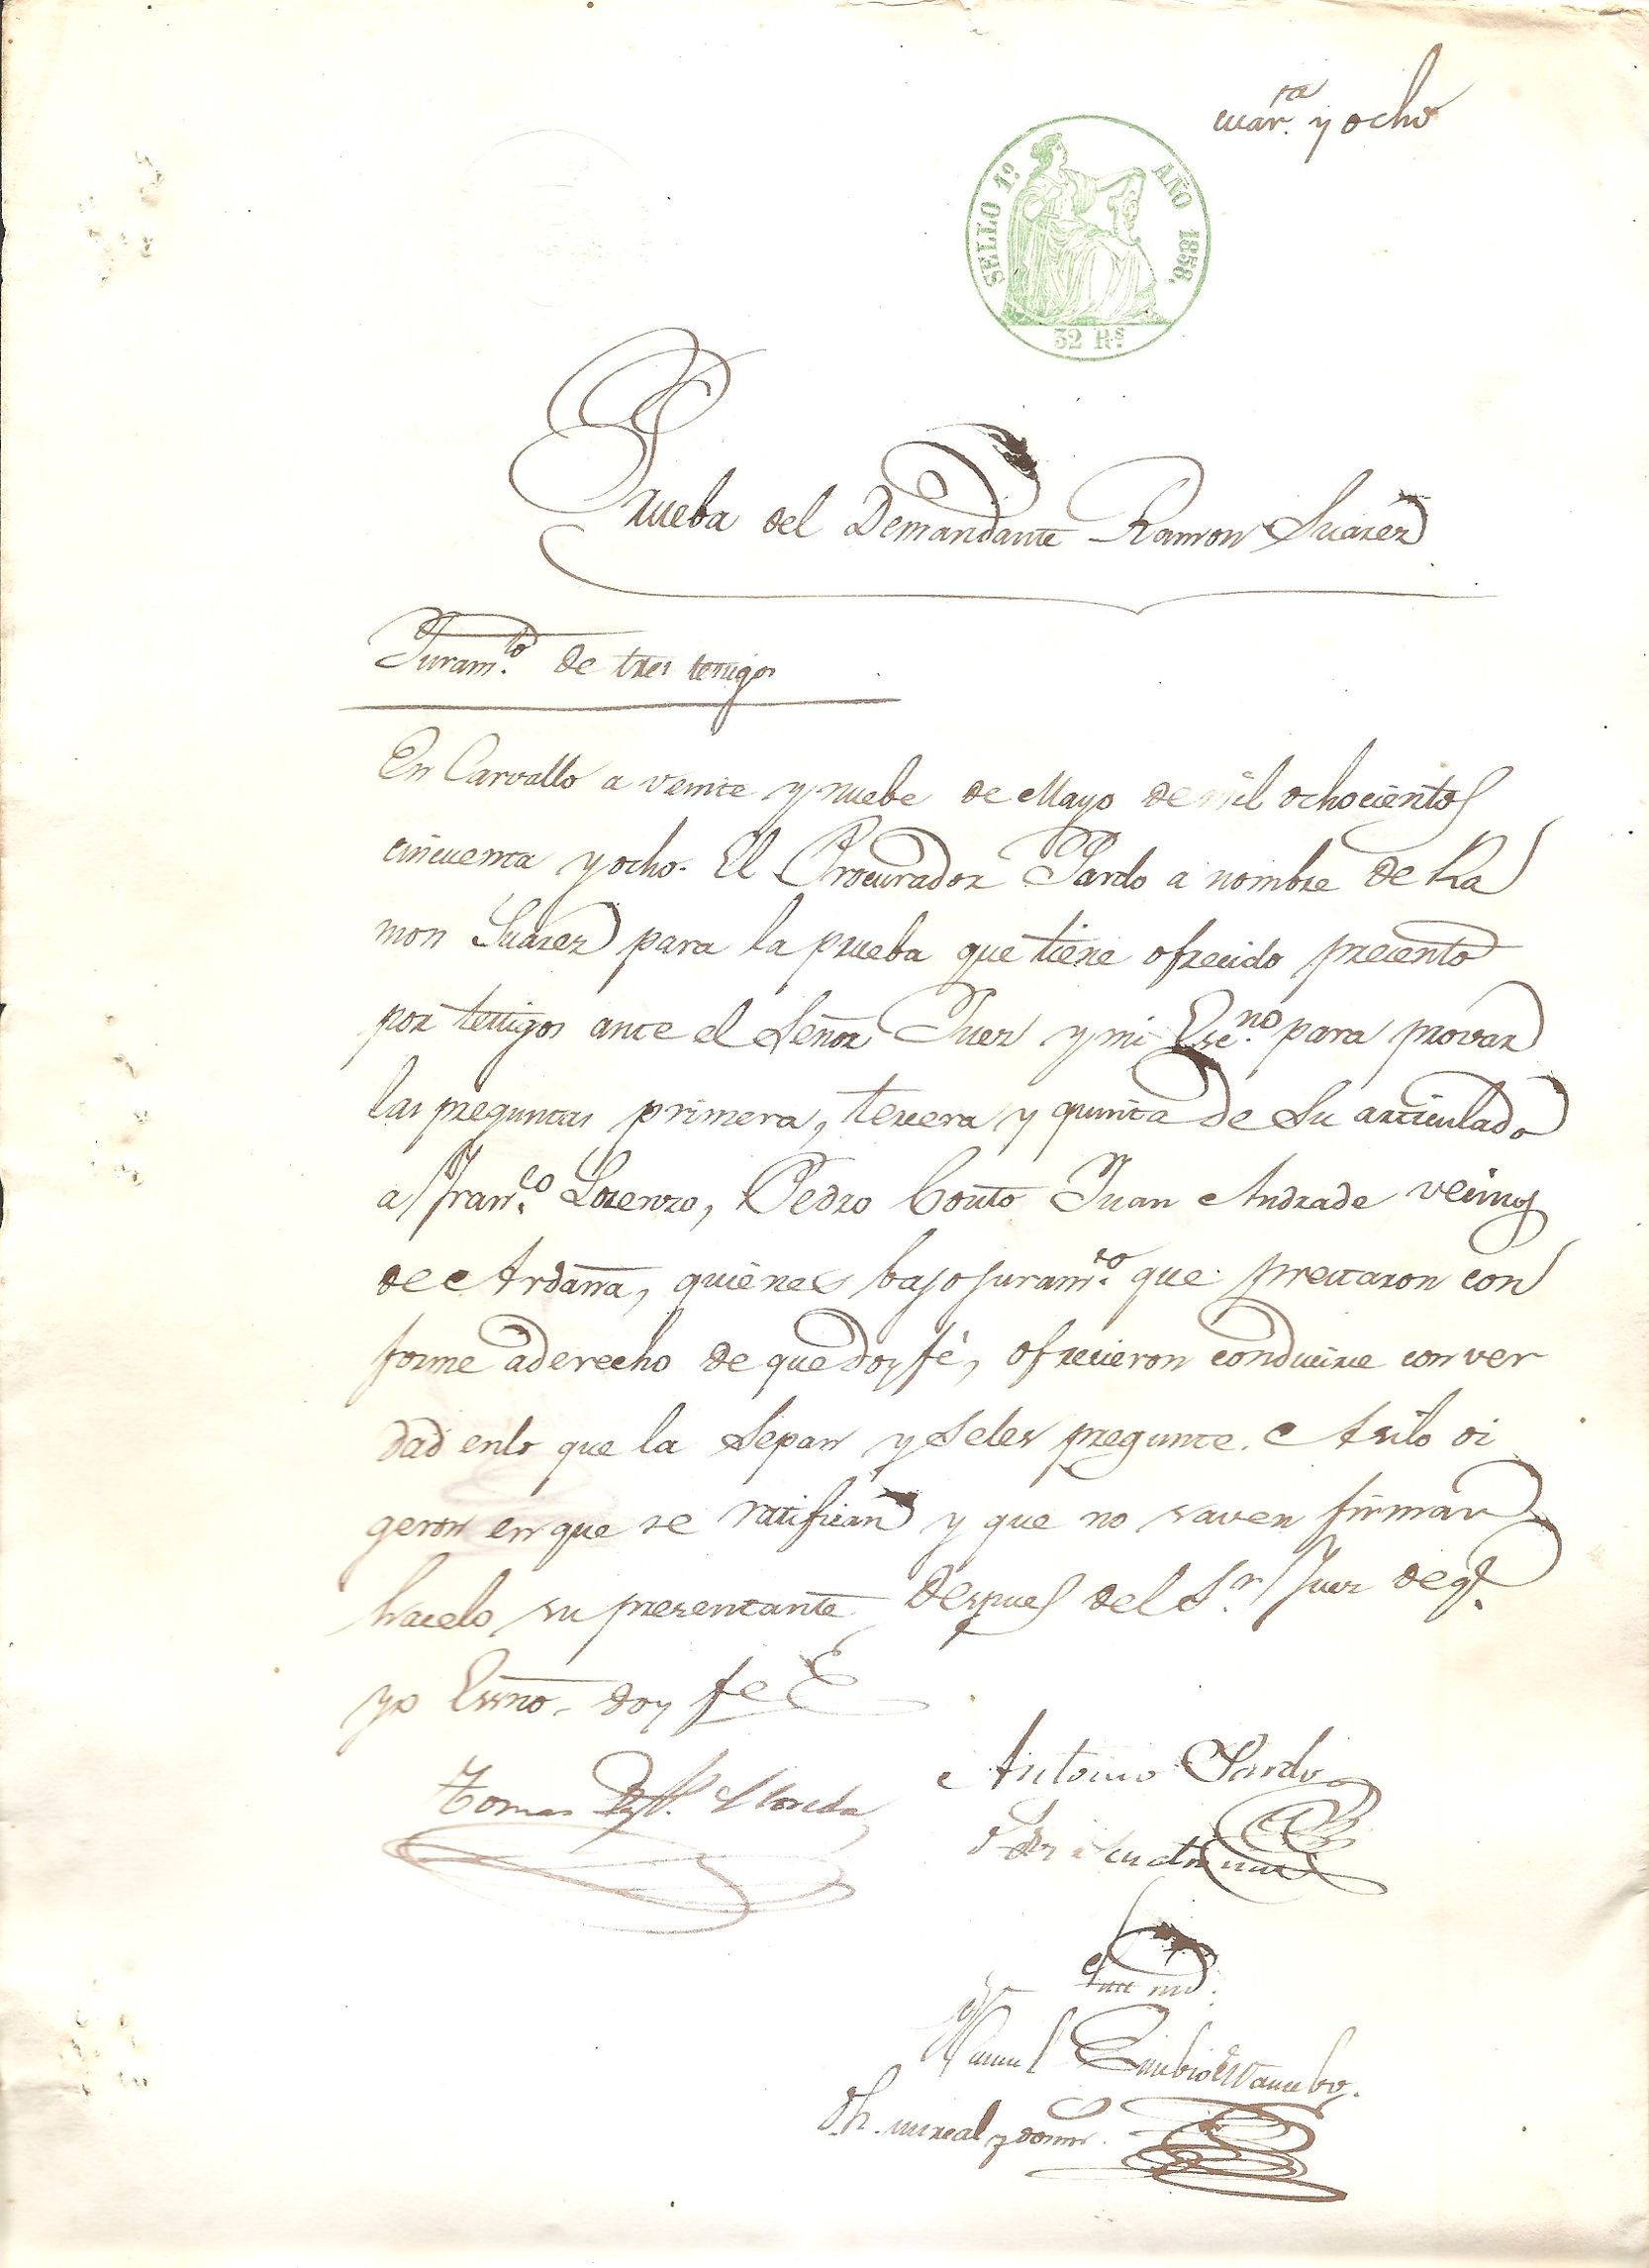 cuar.ta y ocho
SELLO 1º AÑO 1858.
32 Rs.
Prueba del Demandante Ramon Suarez
Juram.to de tres testigos
En Carvallo a veinte y nuebe de Mayo de mil ochocientos
cincuenta y ocho. El Procurador Pardo a nombre de Ra
mon Suarez para la prueba que tiene ofrecido presento
por testigos ante el Señor Juez y mi Esc.no para provar
las preguntas primera, tercera y quinta de su articulado
a Fran.co Lorenzo, Pedro Couto Juan Andrade vecinos
de Ardaña, quienes bajo juram.to que prestaron con
forme a derecho de que doy fé, ofrecieron conducirse con ver
dad en lo que la sepan y se les pregunte. Asi lo di
geron en que se ratifican y que no saven firmar
hacelo su presentante despues del S.r Juez de q.e
yo Essno. doy fe
Tomas Lloreda
Antonio Pardo
Ante mi.
Manuel